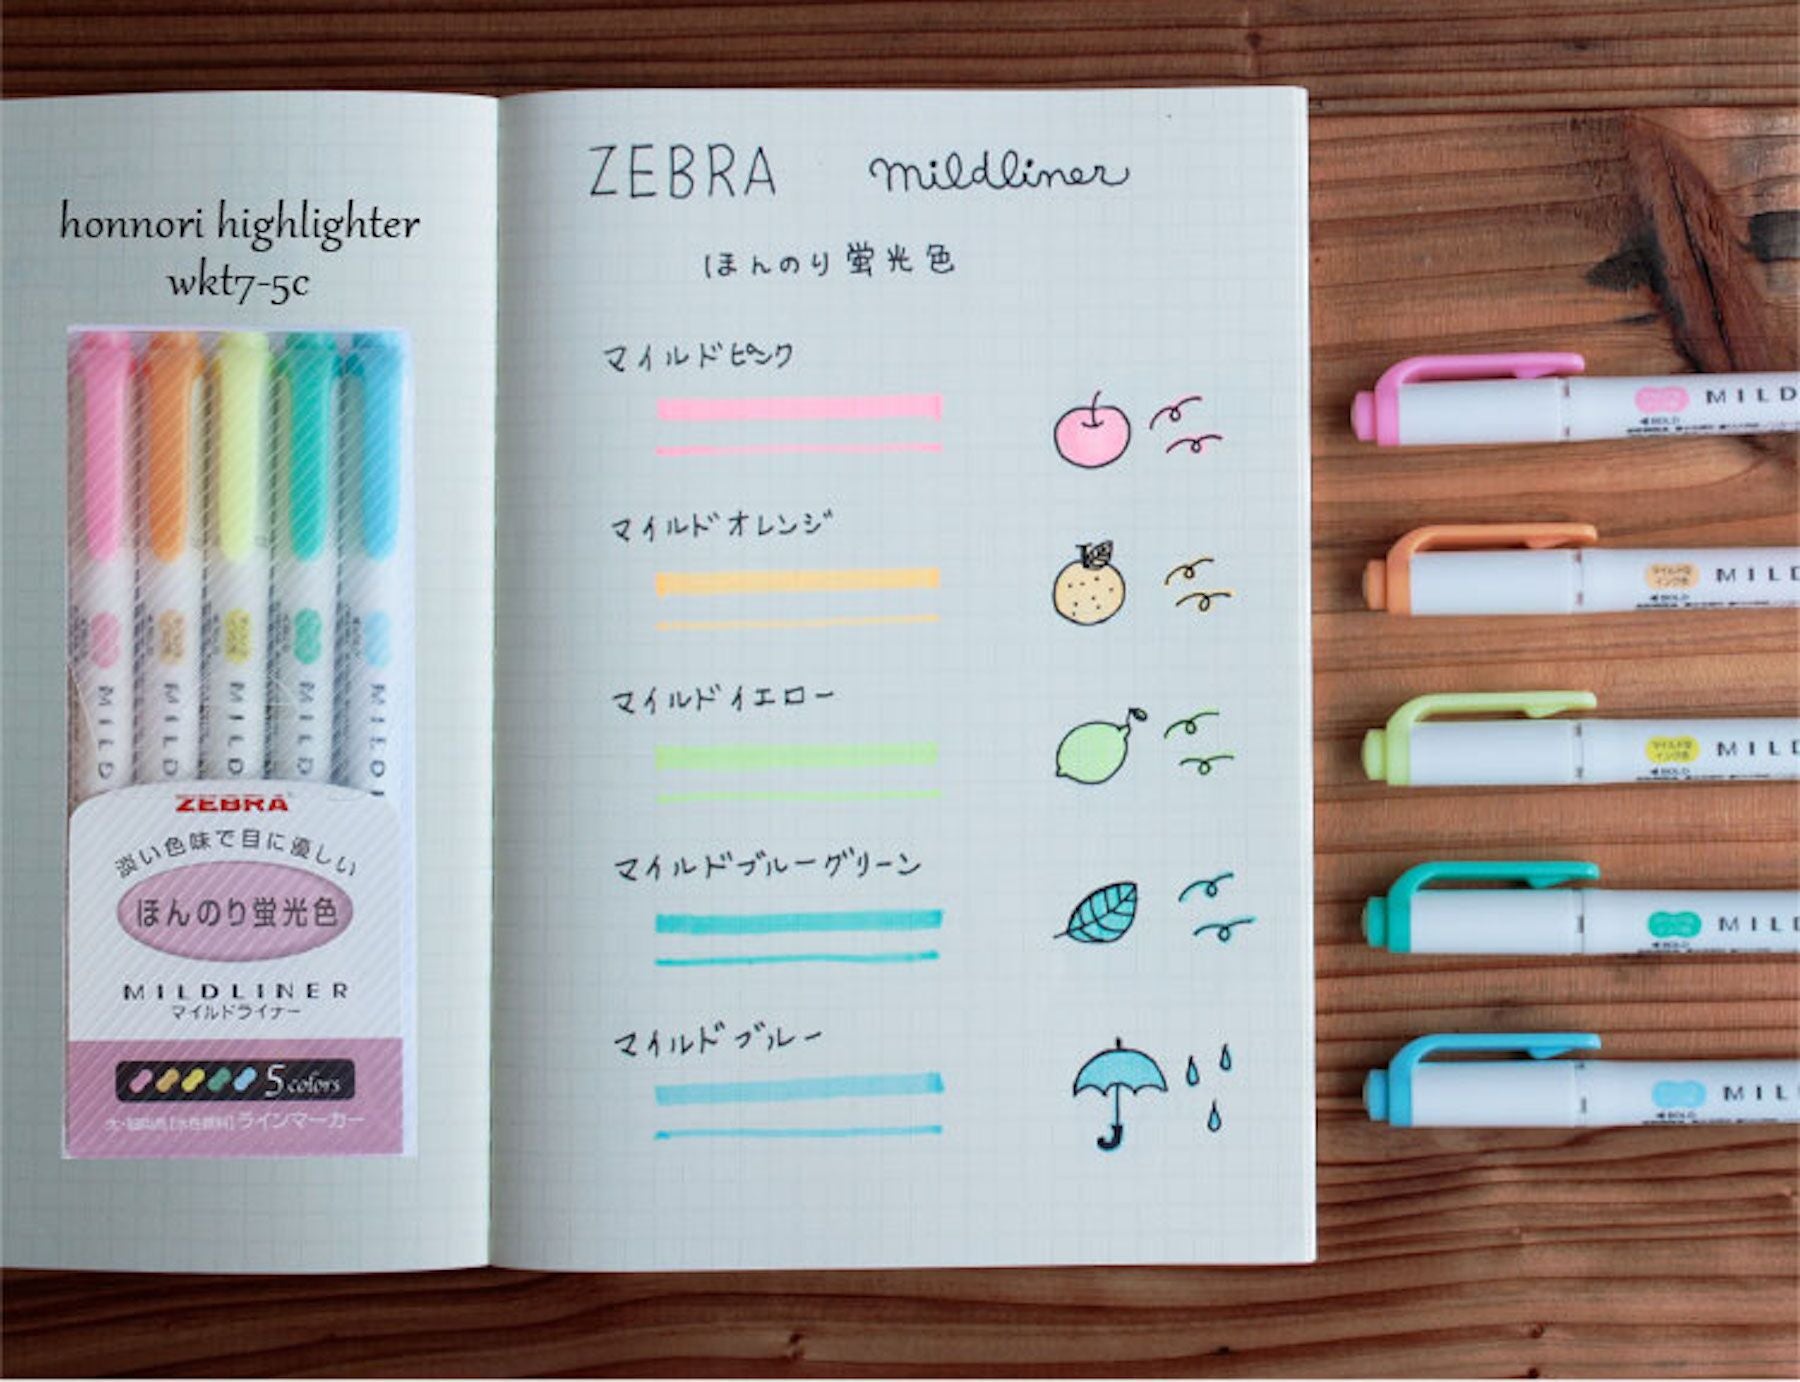 honnori highlighter
wkt7-5c
MILD
MILD
MILD
MILD
MILD
ZEBRA
淡い色味で目に優しい
ほんのり蛍光色
MILDLINER
マイルドライナー
5 colors
ラインマーカー
ZEBRA mildliner
ほんのり蛍光色
マイルドピンク
マイルドオレンジ
マイルドイエロー
マイルドブルーグリーン
マイルドブルー
MILD
◀BOLD
マイルドな
インク色
MILD
◀BOLD
マイルドな
インク色
MILD
◀BOLD
MILD
◀BOLD
MILD
◀BOLD